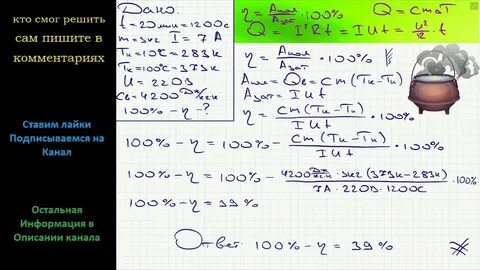 кто смог решить
сам пишите в
комментариях
Ставим лайки
Подписываемся на
Канал
Остальная
Информация в
Описании канала
Дано:
t=20мин=1200с
m=3кг I=7А
Tн=10°С=283К
Tк=100°С=373К
U=220В
Cв=4200 Дж/кгК
100%-η-?
η = Aпол/Aзат · 100% Q = cmΔT
Q = I²Rt = IUt = U²/R · t
η = Aпол/Aзат · 100%
Aпол = Qв = cm(Tк-Tн)
Aзат = IUt
η = cm(Tк-Tн)/IUt · 100%
100%-η = 100% - cm(Tк-Tн)/IUt · 100%
100%-η = 100% - 4200 Дж/кгК · 3кг (373К-283К)/7А · 220В · 1200с · 100%
100%-η = 39%
Ответ: 100%-η = 39%